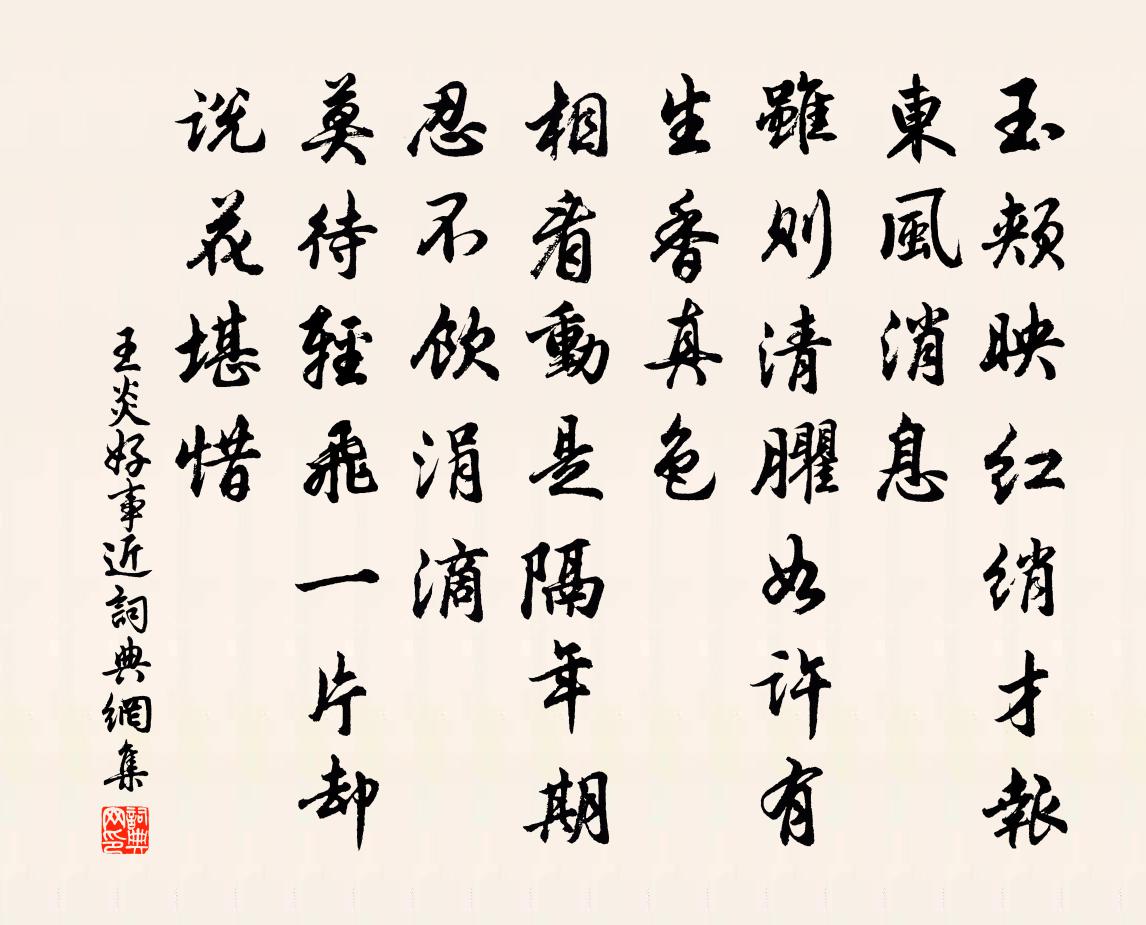 玉頰映紅綃才報
東風消息
雖則清臞如許有
生香真色
相看動是隔年期
忍不飲涓滴
莫待輕飛一片却
說花堪惜
王炎好事近詞典網集
詞典网印